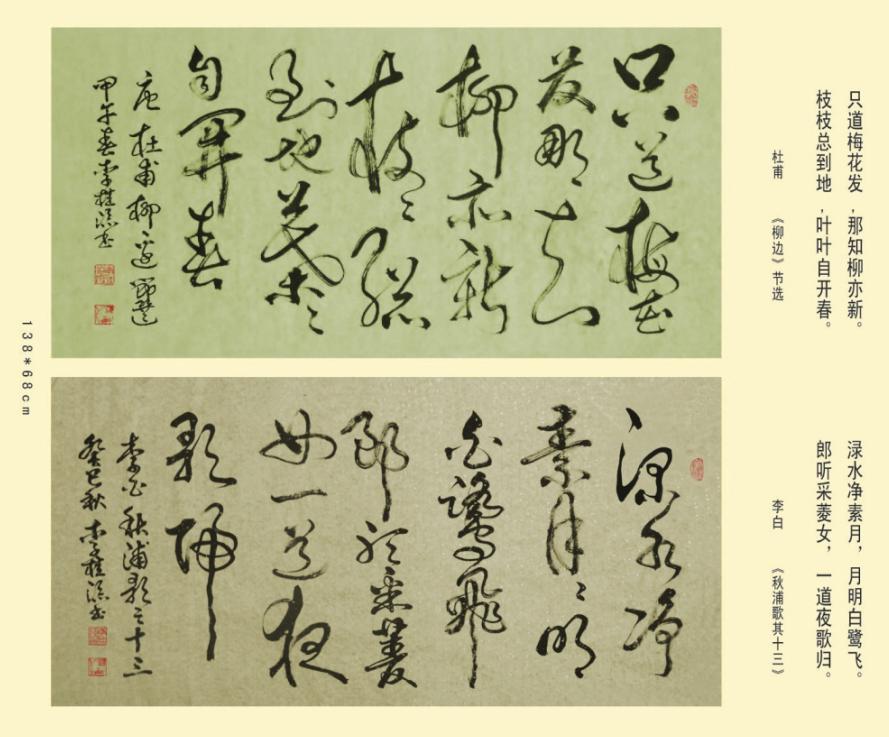 只道梅花发,那知柳亦新。
枝枝总到地,叶叶自开春。
杜甫 《柳边》节选
只道梅花
发那知
柳亦新
枝〻总
到地葉〻
自開春
唐杜甫柳邊節選
甲午春李桂书
渌水净素月,月明白鹭飞。
郎听采菱女,一道夜歌归。
李白 《秋浦歌其十三》
渌水净
素月〻明
白鹭飛
郎听采菱
女一道夜
歌歸
李白秋浦歌之十三
癸巳秋李桂书
138*68cm